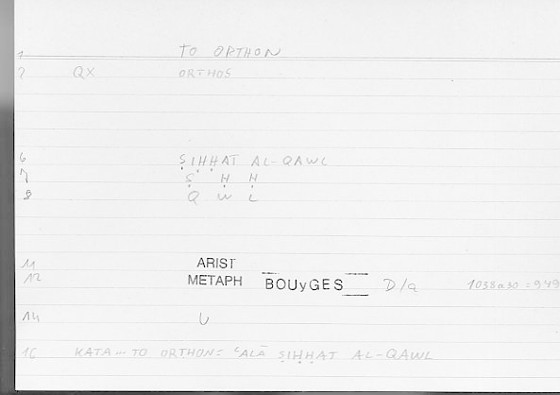 1 TO ORTHON
2 QX ORTHOS
6 ṢIḤḤAT AL-QAWL
7 Ṣ Ḥ Ḥ
8 Q W L
11 ARIST
12 METAPH BOUyGES D/a 1038a30 = 949
14 U
16 KATA — TO ORTHON = ʿALĀ ṢIḤḤAT AL-QAWL